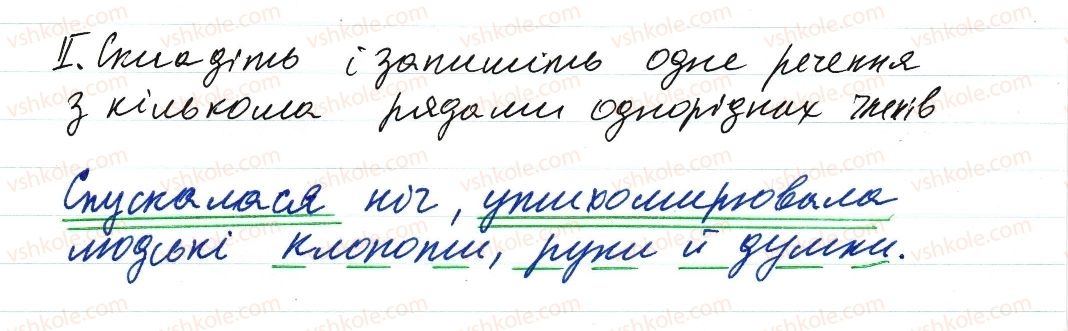 II. Складіть і запишіть одне речення
з кількома рядами однорідних членів
Спускалася ніч, упихомирювала
людські клопоти, рухи й думки.